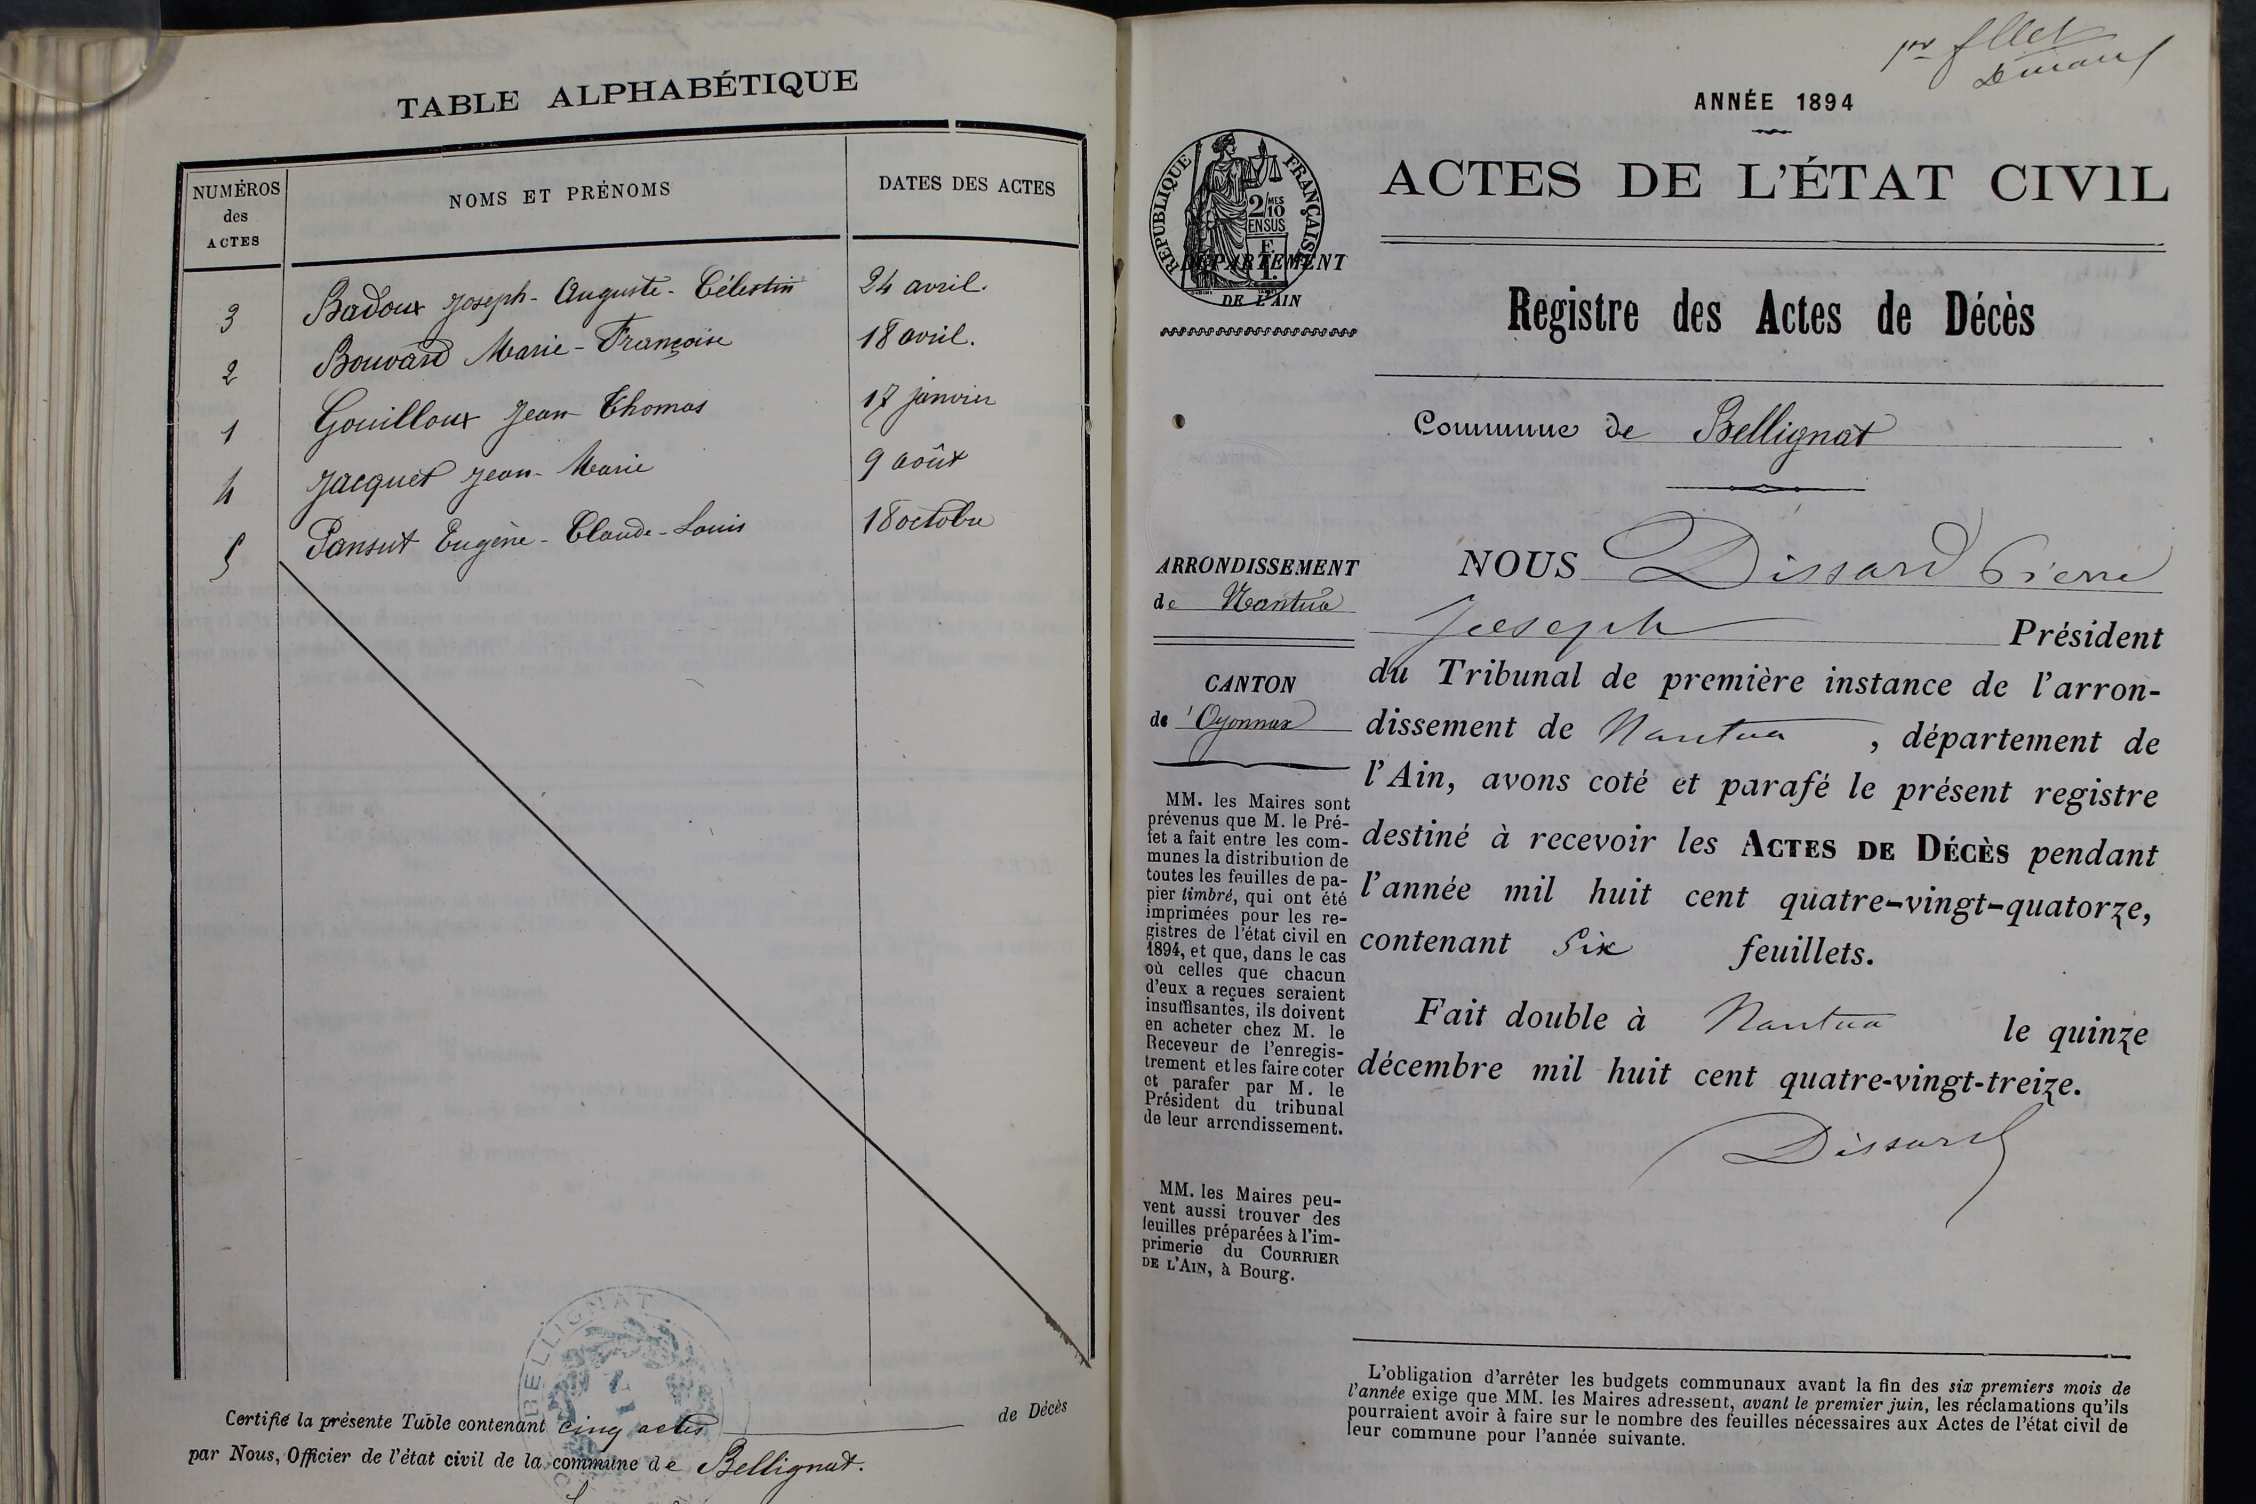 TABLE ALPHABÉTIQUE
NUMÉROS des ACTES
NOMS ET PRÉNOMS
DATES DES ACTES
3 Badoux Joseph-Auguste-Célestin 24 avril.
2 Bouvard Marie-Françoise 18 avril.
1 Gouilloux Jean Thomas 17 janvier
4 Jacquet Jean-Marie 9 août
5 Pansut Eugène-Claude-Louis 18 octobre
BELLIGNAT
Certifié la présente Table contenant cinq actes de Décès
par Nous, Officier de l'état civil de la commune de Bellignat.
ANNÉE 1894
RÉPUBLIQUE FRANÇAISE
2/10 MES
EN SUS
DÉPARTEMENT
DE L'AIN
ACTES DE L'ÉTAT CIVIL
Registre des Actes de Décès
Commune de Bellignat
ARRONDISSEMENT
de Nantua
CANTON
de 'Oyonnax
MM. les Maires sont
prévenus que M. le Pré-
fet a fait entre les com-
munes la distribution de
toutes les feuilles de pa-
pier timbré, qui ont été
imprimées pour les re-
gistres de l'état civil en
1894, et que, dans le cas
où celles que chacun
d'eux a reçues seraient
insuffisantes, ils doivent
en acheter chez M. le
Receveur de l'enregis-
trement et les faire coter
et parafer par M. le
Président du tribunal
de leur arrondissement.
MM. les Maires peu-
vent aussi trouver des
feuilles préparées à l'im-
primerie du COURRIER
DE L'AIN, à Bourg.
NOUS Dissard Pierre
Joseph Président
du Tribunal de première instance de l'arron-
dissement de Nantua, département de
l'Ain, avons coté et parafé le présent registre
destiné à recevoir les ACTES DE DÉCÈS pendant
l'année mil huit cent quatre-vingt-quatorze,
contenant Six feuillets.
Fait double à Nantua le quinze
décembre mil huit cent quatre-vingt-treize.
Dissard
L'obligation d'arrêter les budgets communaux avant la fin des six premiers mois de
l'année exige que MM. les Maires adressent, avant le premier juin, les réclamations qu'ils
pourraient avoir à faire sur le nombre des feuilles nécessaires aux Actes de l'état civil de
leur commune pour l'année suivante.